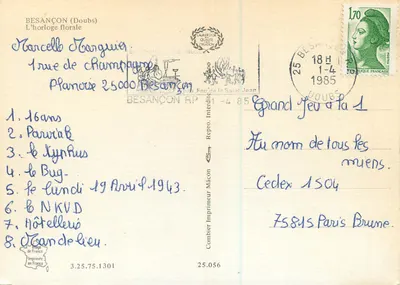 BESANÇON (Doubs)
L'horloge florale
Marcelle Marguier
1 rue de champagne
Planoise 25000 Besançon
BESANÇON RP 1-4 85
1. 16 ans
2. Parwiak
3. le typhus
4. le Bug.
5. le lundi 19 Avril 1943.
6. le NKVD
7. Hôtellerie
8. Mandelieu.
3.25.75.1301
25.056
Combier Imprimeur Mâcon
1,70
25 BESANÇON
18 H
1-4
1985
DOUBS
Grand Jeu à la 1
Au nom de tous les
miens.
Cedex 1504
75815 Paris Brune.